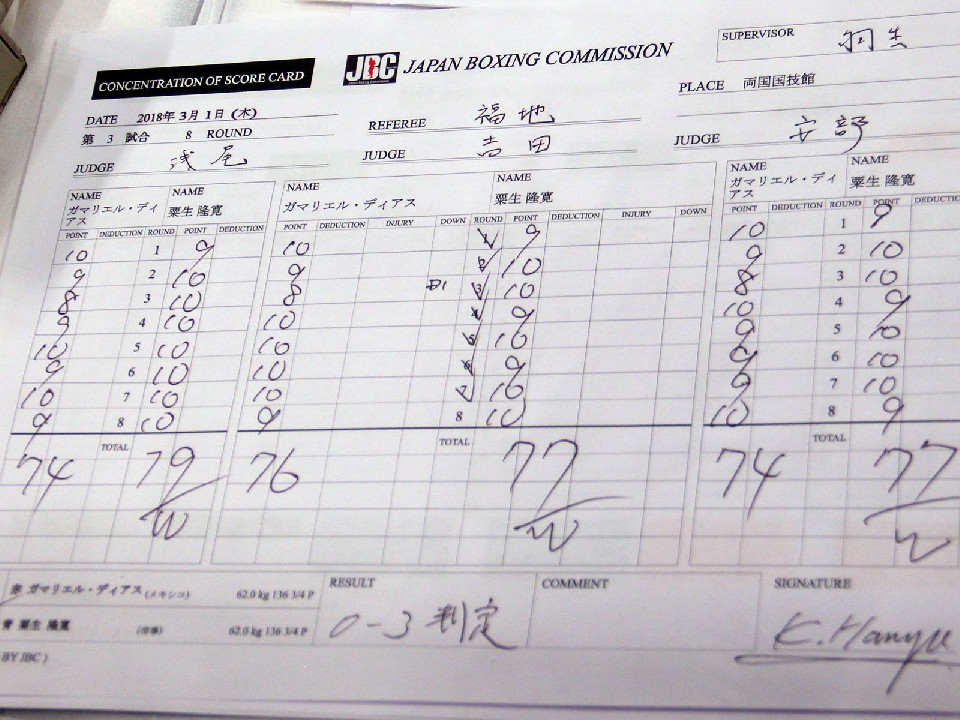 SUPERVISOR 羽生
CONCENTRATION OF SCORE CARD
JBC JAPAN BOXING COMMISSION
PLACE 両国国技館
DATE 2018年 3月 1日 (木)
第 3 試合 8 ROUND
REFEREE 福地
JUDGE 浅尾
JUDGE 吉田
JUDGE 安部
NAME NAME NAME NAME NAME NAME
ガマリエル・ディアス 粟生 隆寛 ガマリエル・ディアス 粟生 隆寛 ガマリエル・ディアス 粟生 隆寛
POINT DEDUCTION ROUND POINT DEDUCTION POINT DEDUCTION INJURY DOWN ROUND POINT DEDUCTION INJURY DOWN POINT DEDUCTION ROUND POINT DEDUCTIO
10 1 9 10 1 9 10 1 9
9 2 10 9 2 10 9 2 10
8 3 10 8 D1 3 10 8 3 10
9 4 10 10 4 9 10 4 9
10 5 10 10 5 10 9 5 10
9 6 10 10 6 9 9 6 10
10 7 10 10 7 10 9 7 10
9 8 10 9 8 10 10 8 9
TOTAL TOTAL TOTAL
74 79 76 77 74 77
W W W
赤 ガマリエル・ディアス (メキシコ) 62.0 kg 136 3/4 P
青 粟生 隆寛 (帝拳) 62.0 kg 136 3/4 P
BY JBC )
RESULT
0-3 判定
COMMENT
SIGNATURE
K.Hanyu